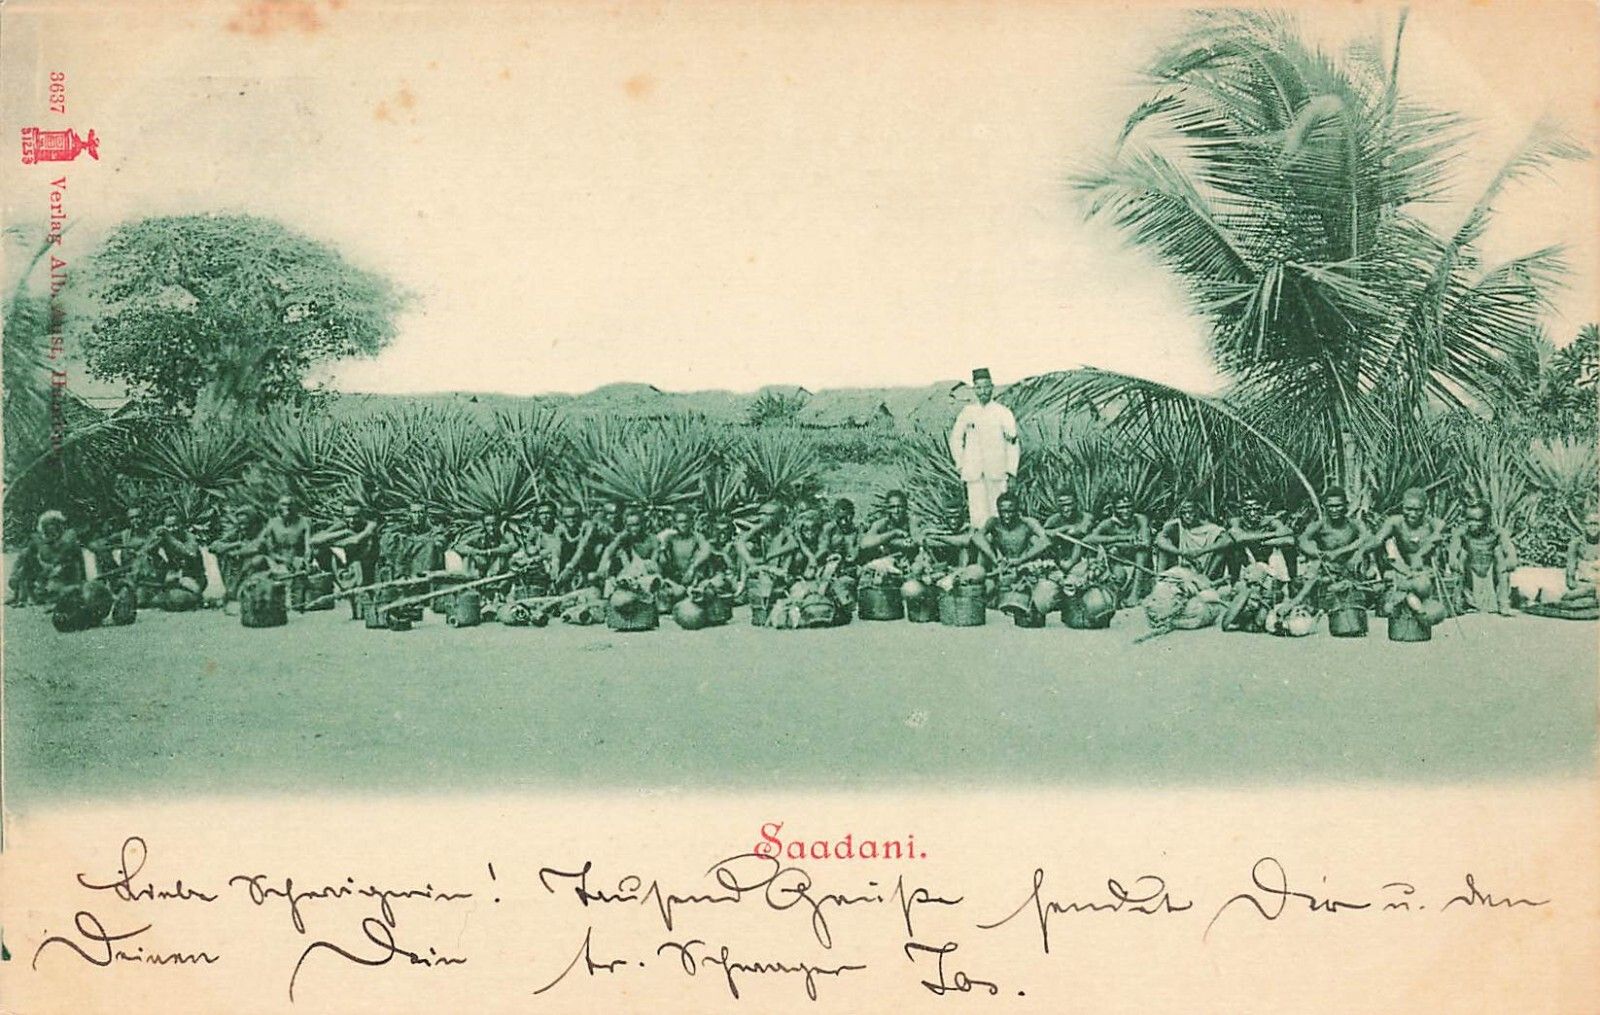 3637
31253
Verlag Alb. Aust, Hamburg
Saadani.
Liebe Schwägerin! Tausend Grüße sendet Dir u. den
Deinen Dein tr. Schwager Jos.